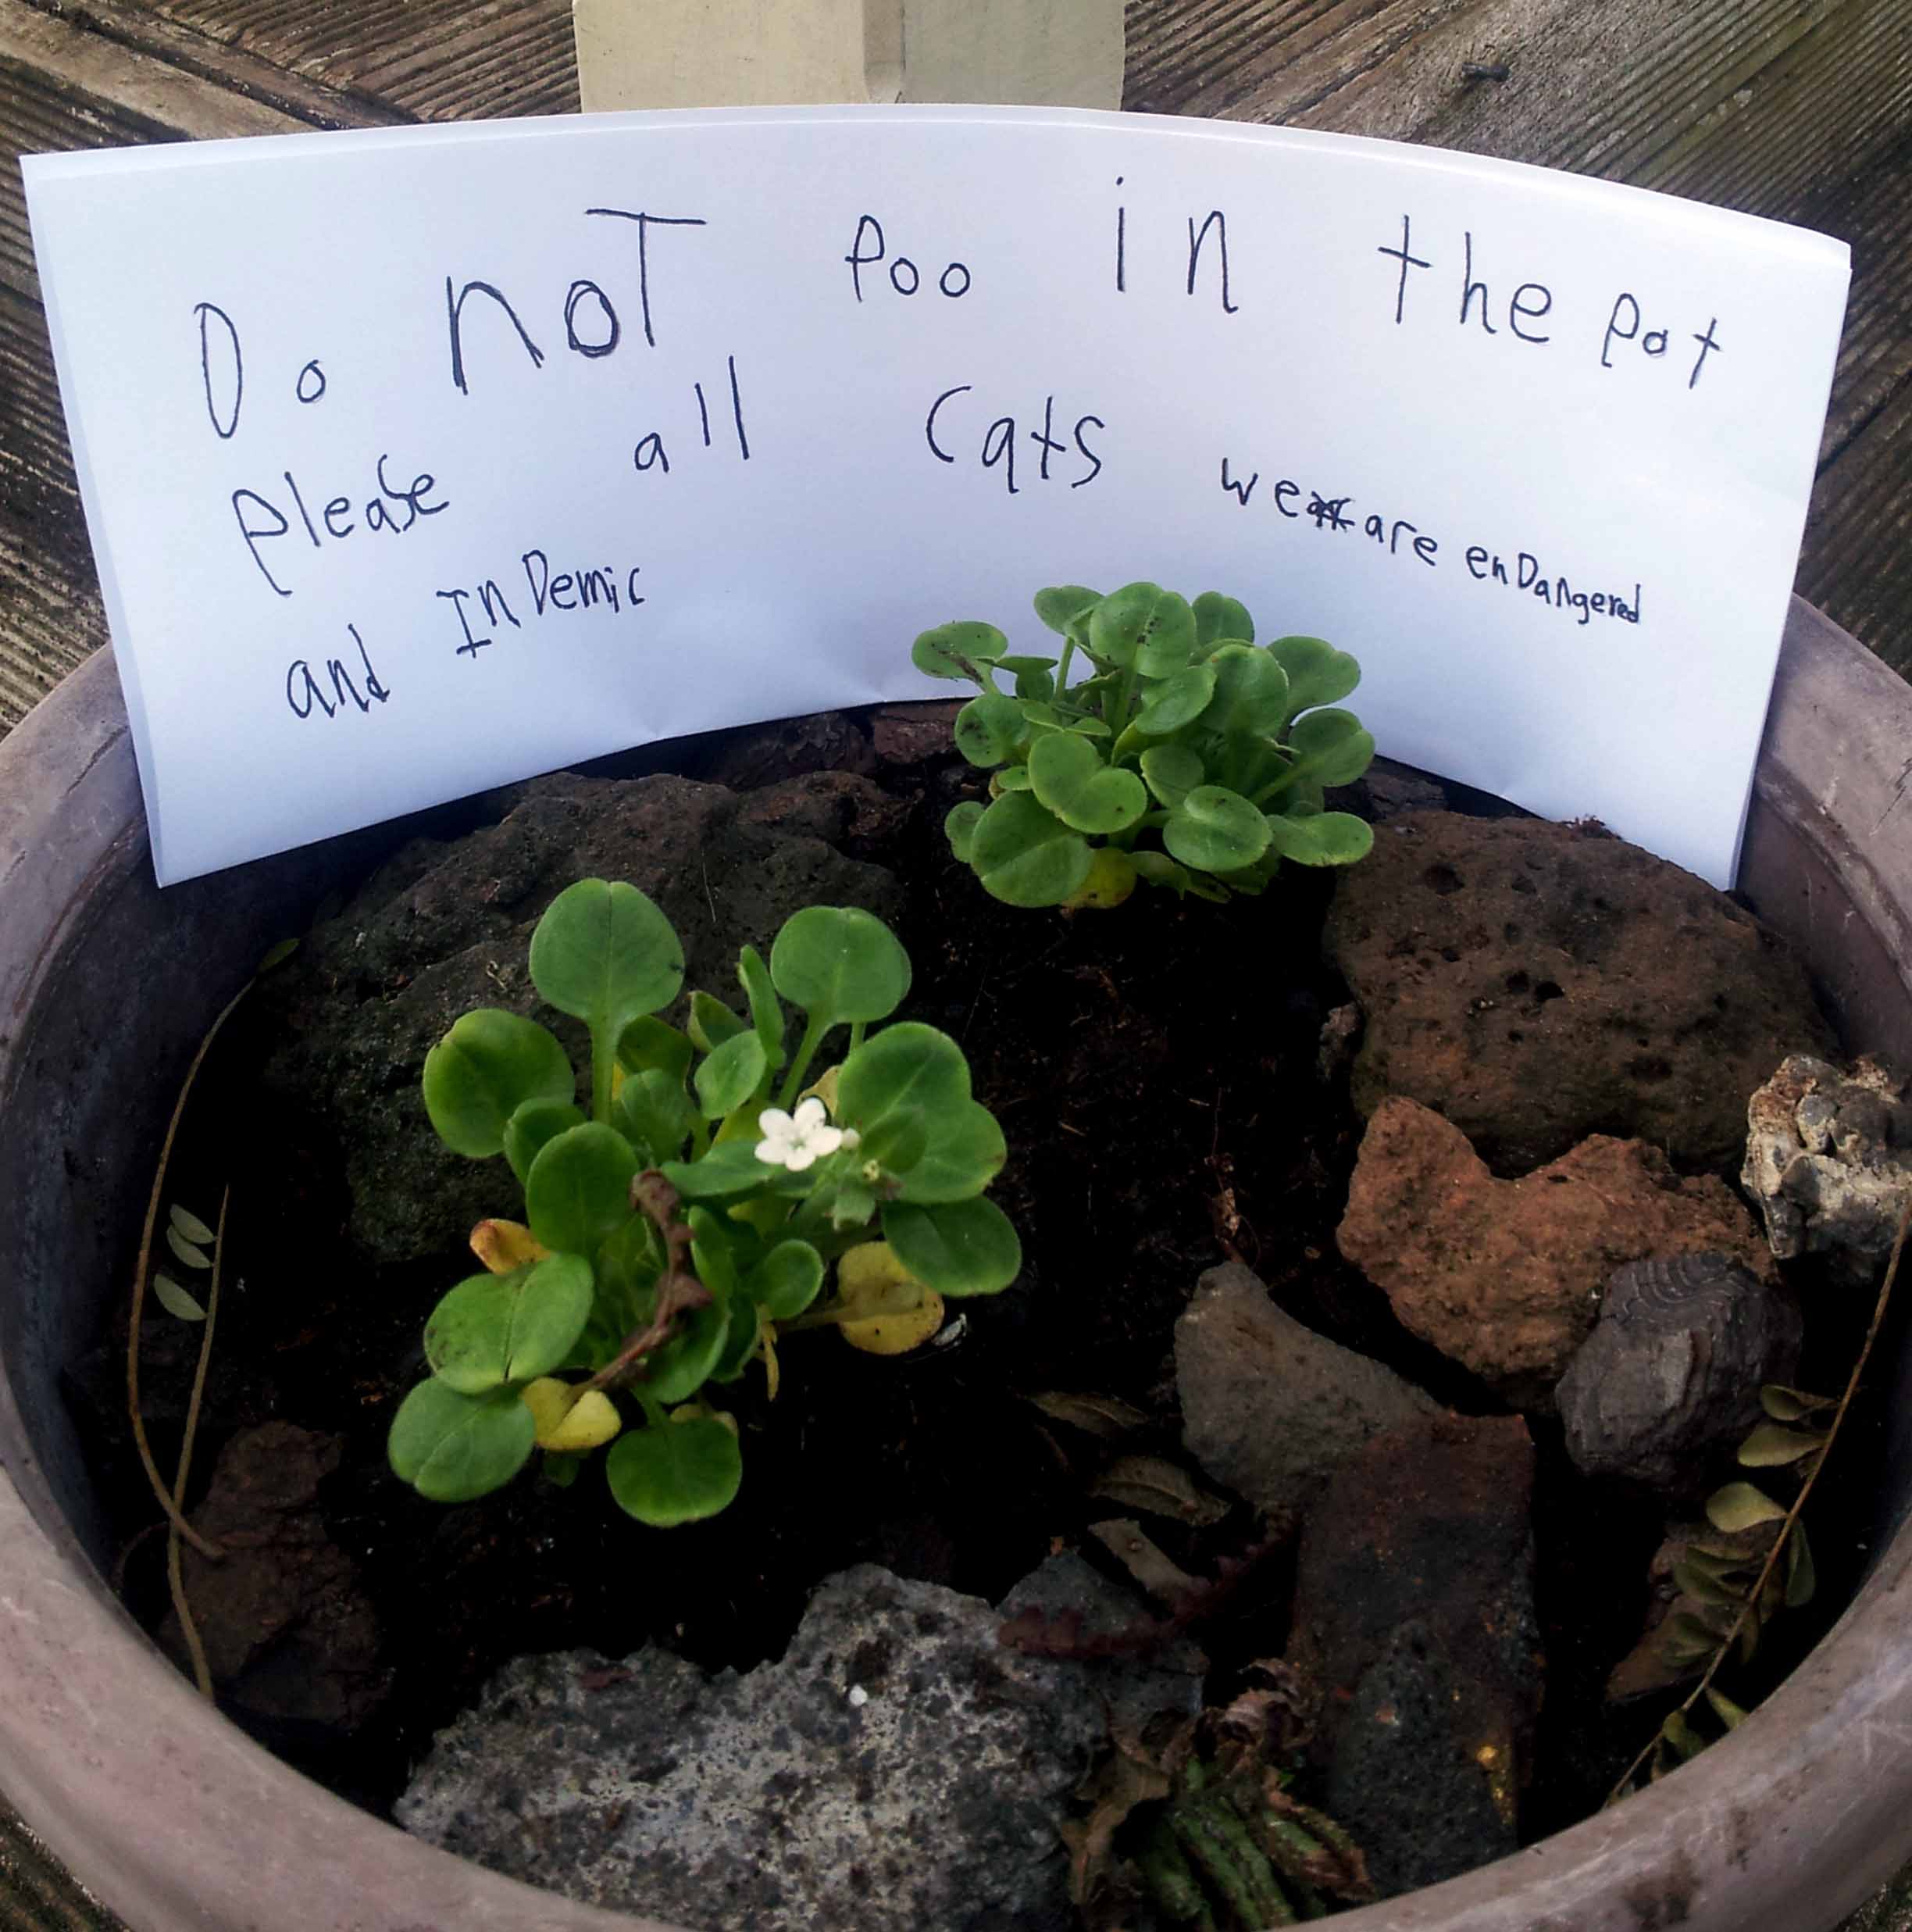 Do noT Poo in the pot
please all Cats we are enDangered
and InDemic